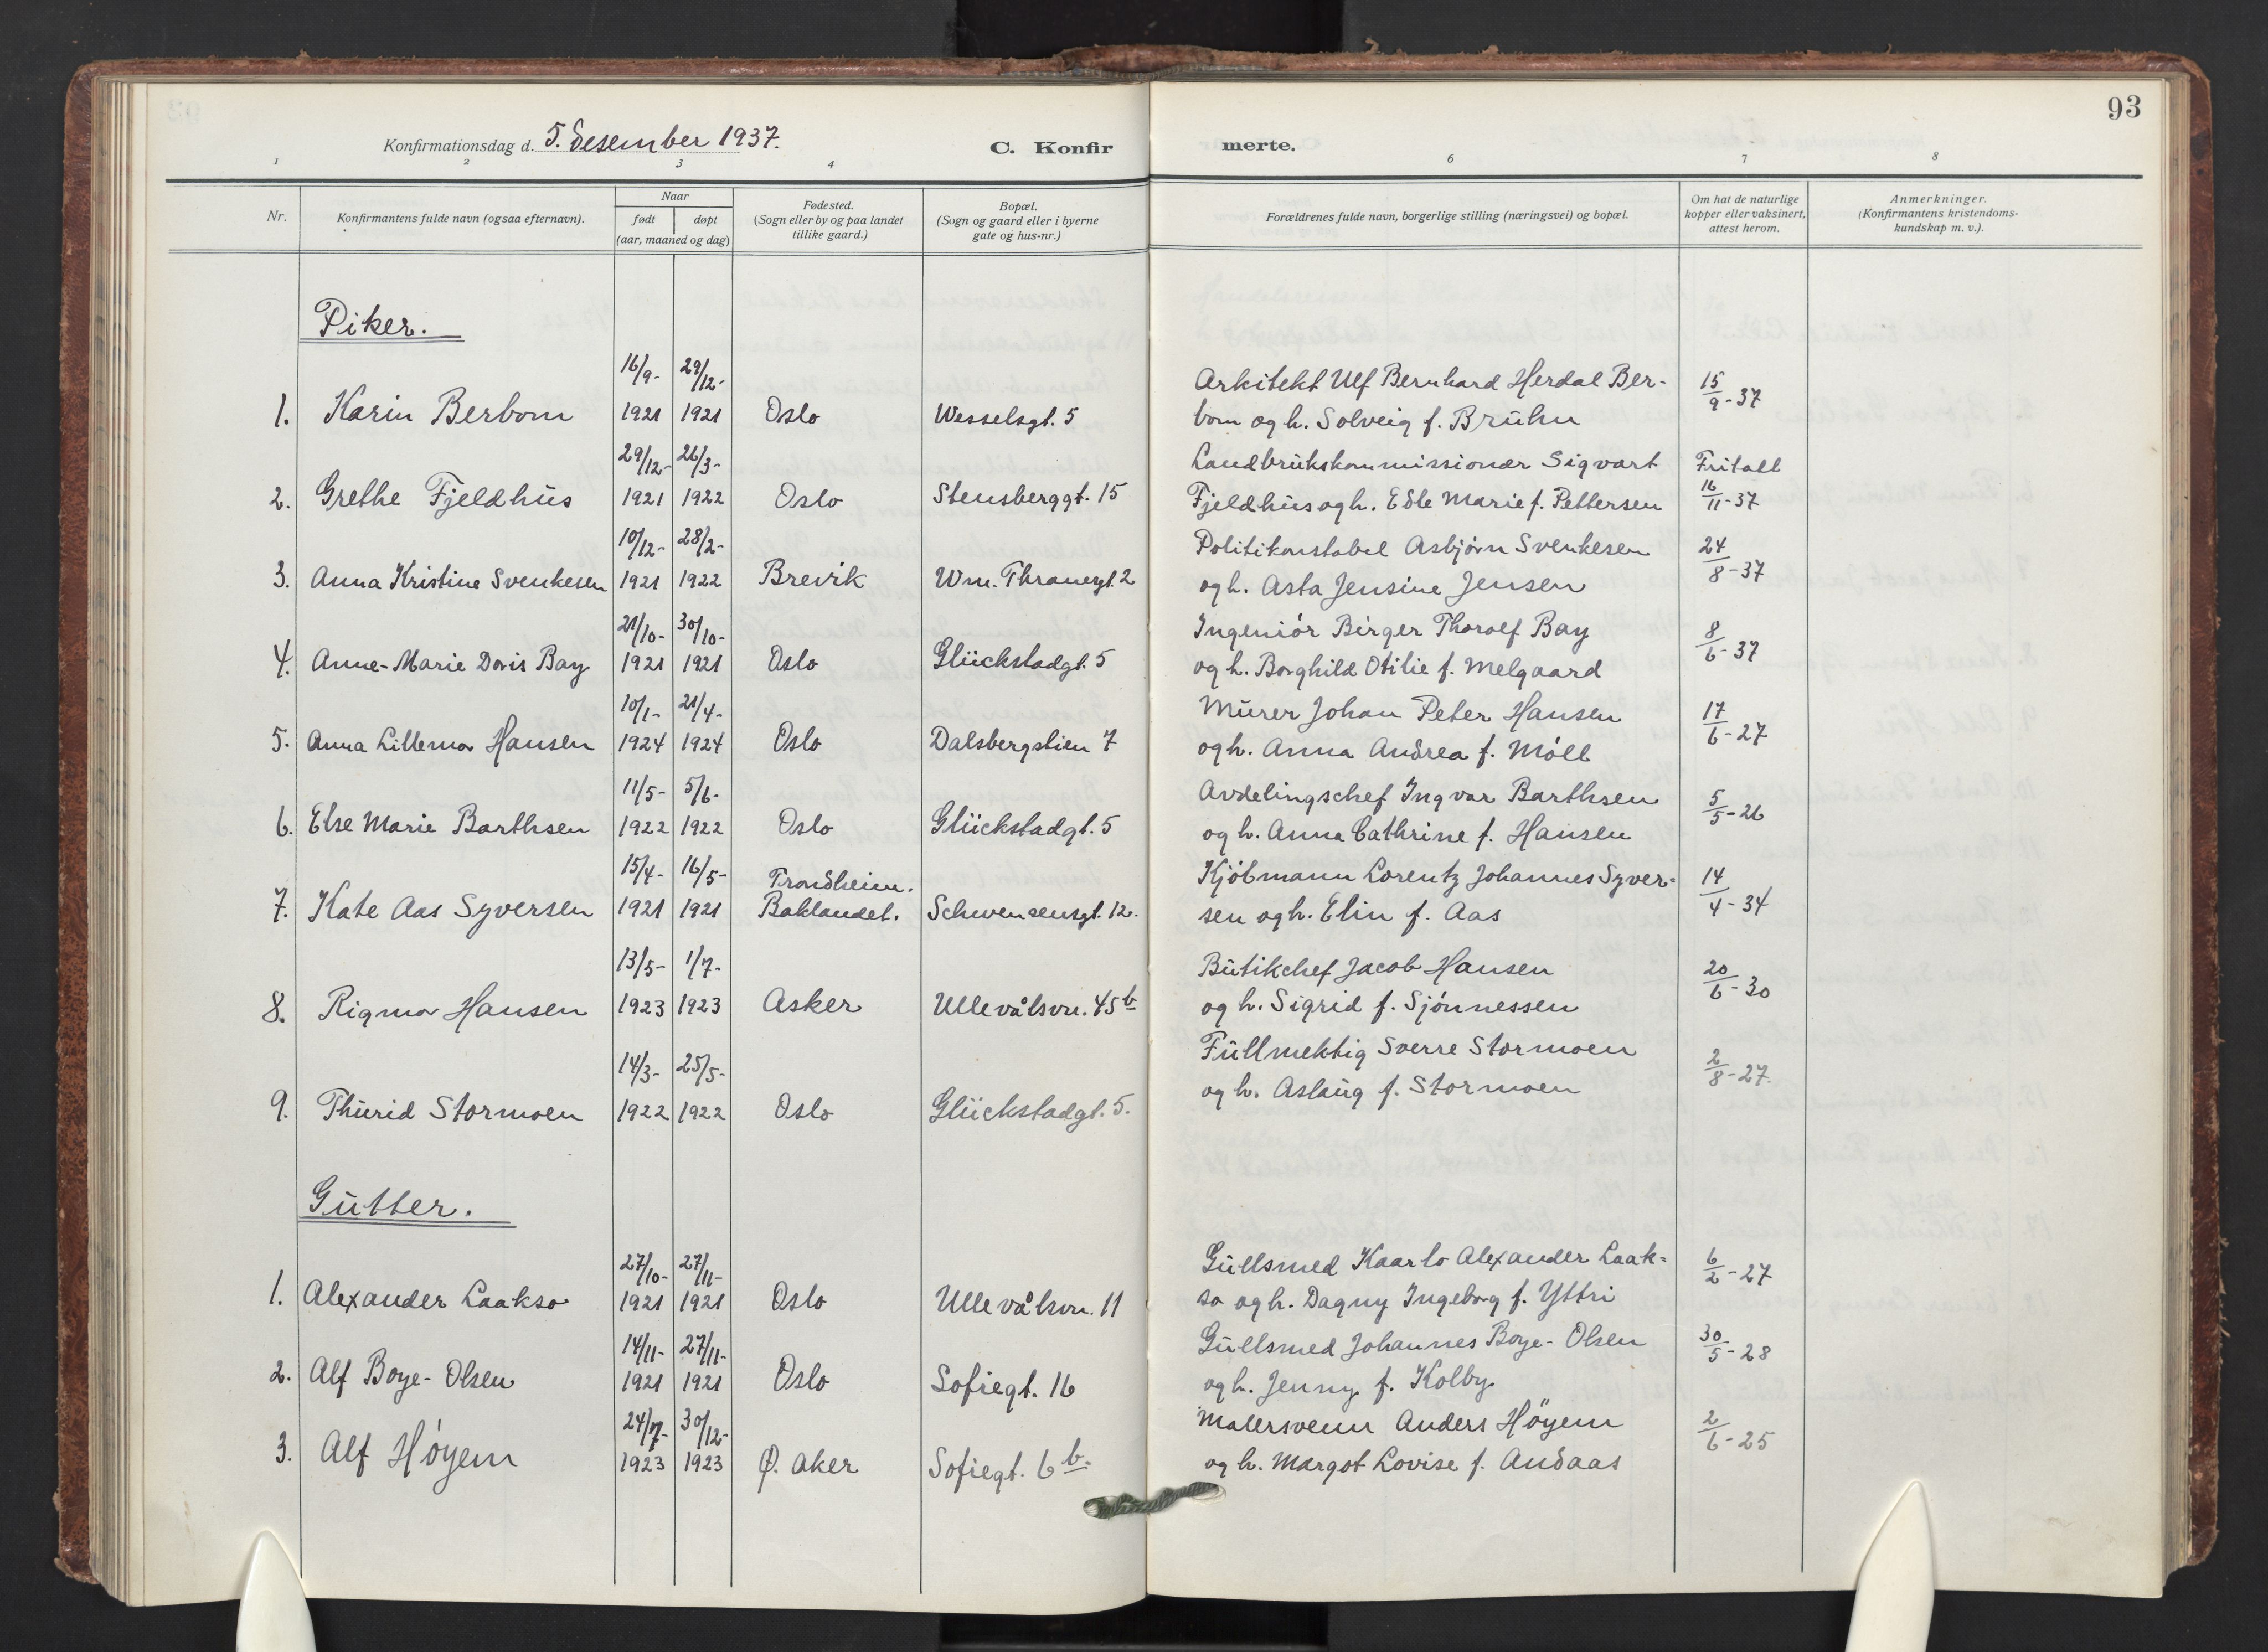 93
Konfirmationsdag d. 5. desember 1937.
C. Konfirmerte.
1 2 3 4 6 7 8
Nr.
Konfirmantens fulde navn (ogsaa efternavn).
Naar
født døpt
(aar, maaned og dag)
Fødested.
(Sogn eller by og paa landet
tillike gaard.)
Bopæl.
(Sogn og gaard eller i byerne
gate og hus-nr.)
Forældrenes fulde navn, borgerlige stilling (næringsvei) og bopæl.
Om hat de naturlige
kopper eller vaksinert,
attest herom.
Anmerkninger.
(Konfirmantens kristendoms-
kundskap m. v.).
Piker.
16/9- 29/12- Arkitekt Ulf Bernhard Herdal Ber- 15/9-37
1. Karin Berbom 1921 1921 Oslo Wesselsgt. 5 bom og h. Solveig f. Bruhn
29/12- 26/3- Landbrukskommissionær Sigvart Fritatt
2. Grethe Fjeldhus 1921 1922 Oslo Stensberggt. 15 Fjeldhus og h. Edle Marie f. Pettersen 16/11-37
10/12- 28/2- Politikonstabel Asbjørn Svenkesen 24/8-37
3. Anna Kristine Svenkesen 1921 1922 Brevik Wm. Thranesgt. 2 og h. Asta Jensine Jensen
21/10- 30/10- Ingeniør Birger Thorolf Bay 8/6-37
4. Anne-Marie Doris Bay 1921 1921 Oslo Glückstadgt. 5 og h. Borghild Otilie f. Melgaard
10/1- 21/4- Murer Johan Peter Hansen 17/6-27
5. Anna Lillemor Hansen 1924 1924 Oslo Dalsbergstien 7 og h. Anna Andrea f. Møll
11/5- 5/6- Avdelingschef Ingvar Barthsen 5/5-26
6. Else Marie Barthsen 1922 1922 Oslo Glückstadgt. 5 og h. Anna Cathrine f. Hansen
15/4- 16/5- Trondheim. Kjøbmann Lorentz Johannes Syver- 14/4-34
7. Kate Aas Syversen 1921 1921 Baklandet. Schwensensgt. 12. sen og h. Elin f. Aas
13/5- 1/7- Butikchef Jacob Hansen 20/6-30
8. Rigmor Hansen 1923 1923 Asker Ullevålsvn. 45 b og h. Sigrid f. Sjønnessen
14/3- 25/5- Fullmektig Sverre Stormoen 2/8-27.
9. Thurid Stormoen 1922 1922 Oslo Glückstadgt. 5. og h. Aslaug f. Stormoen
Gutter.
27/10- 27/11- Gullsmed Kaarlo Alexander Laak- 6/2-27
1. Alexander Laakso 1921 1921 Oslo Ullevålsvn. 11 so og h. Dagny Ingeborg f. Yttri
14/11- 27/11- Gullsmed Johannes Boye-Olsen 30/5-28
2. Alf Boye-Olsen 1921 1921 Oslo Sofiegt. 16 og h. Jenny f. Kolby
24/7- 30/12- Malersvenn Anders Höyem 2/6-25
3. Alf Høyem 1923 1923 Ø. Aker Sofiegt. 6 b. og h. Margot Lovise f. Andaas